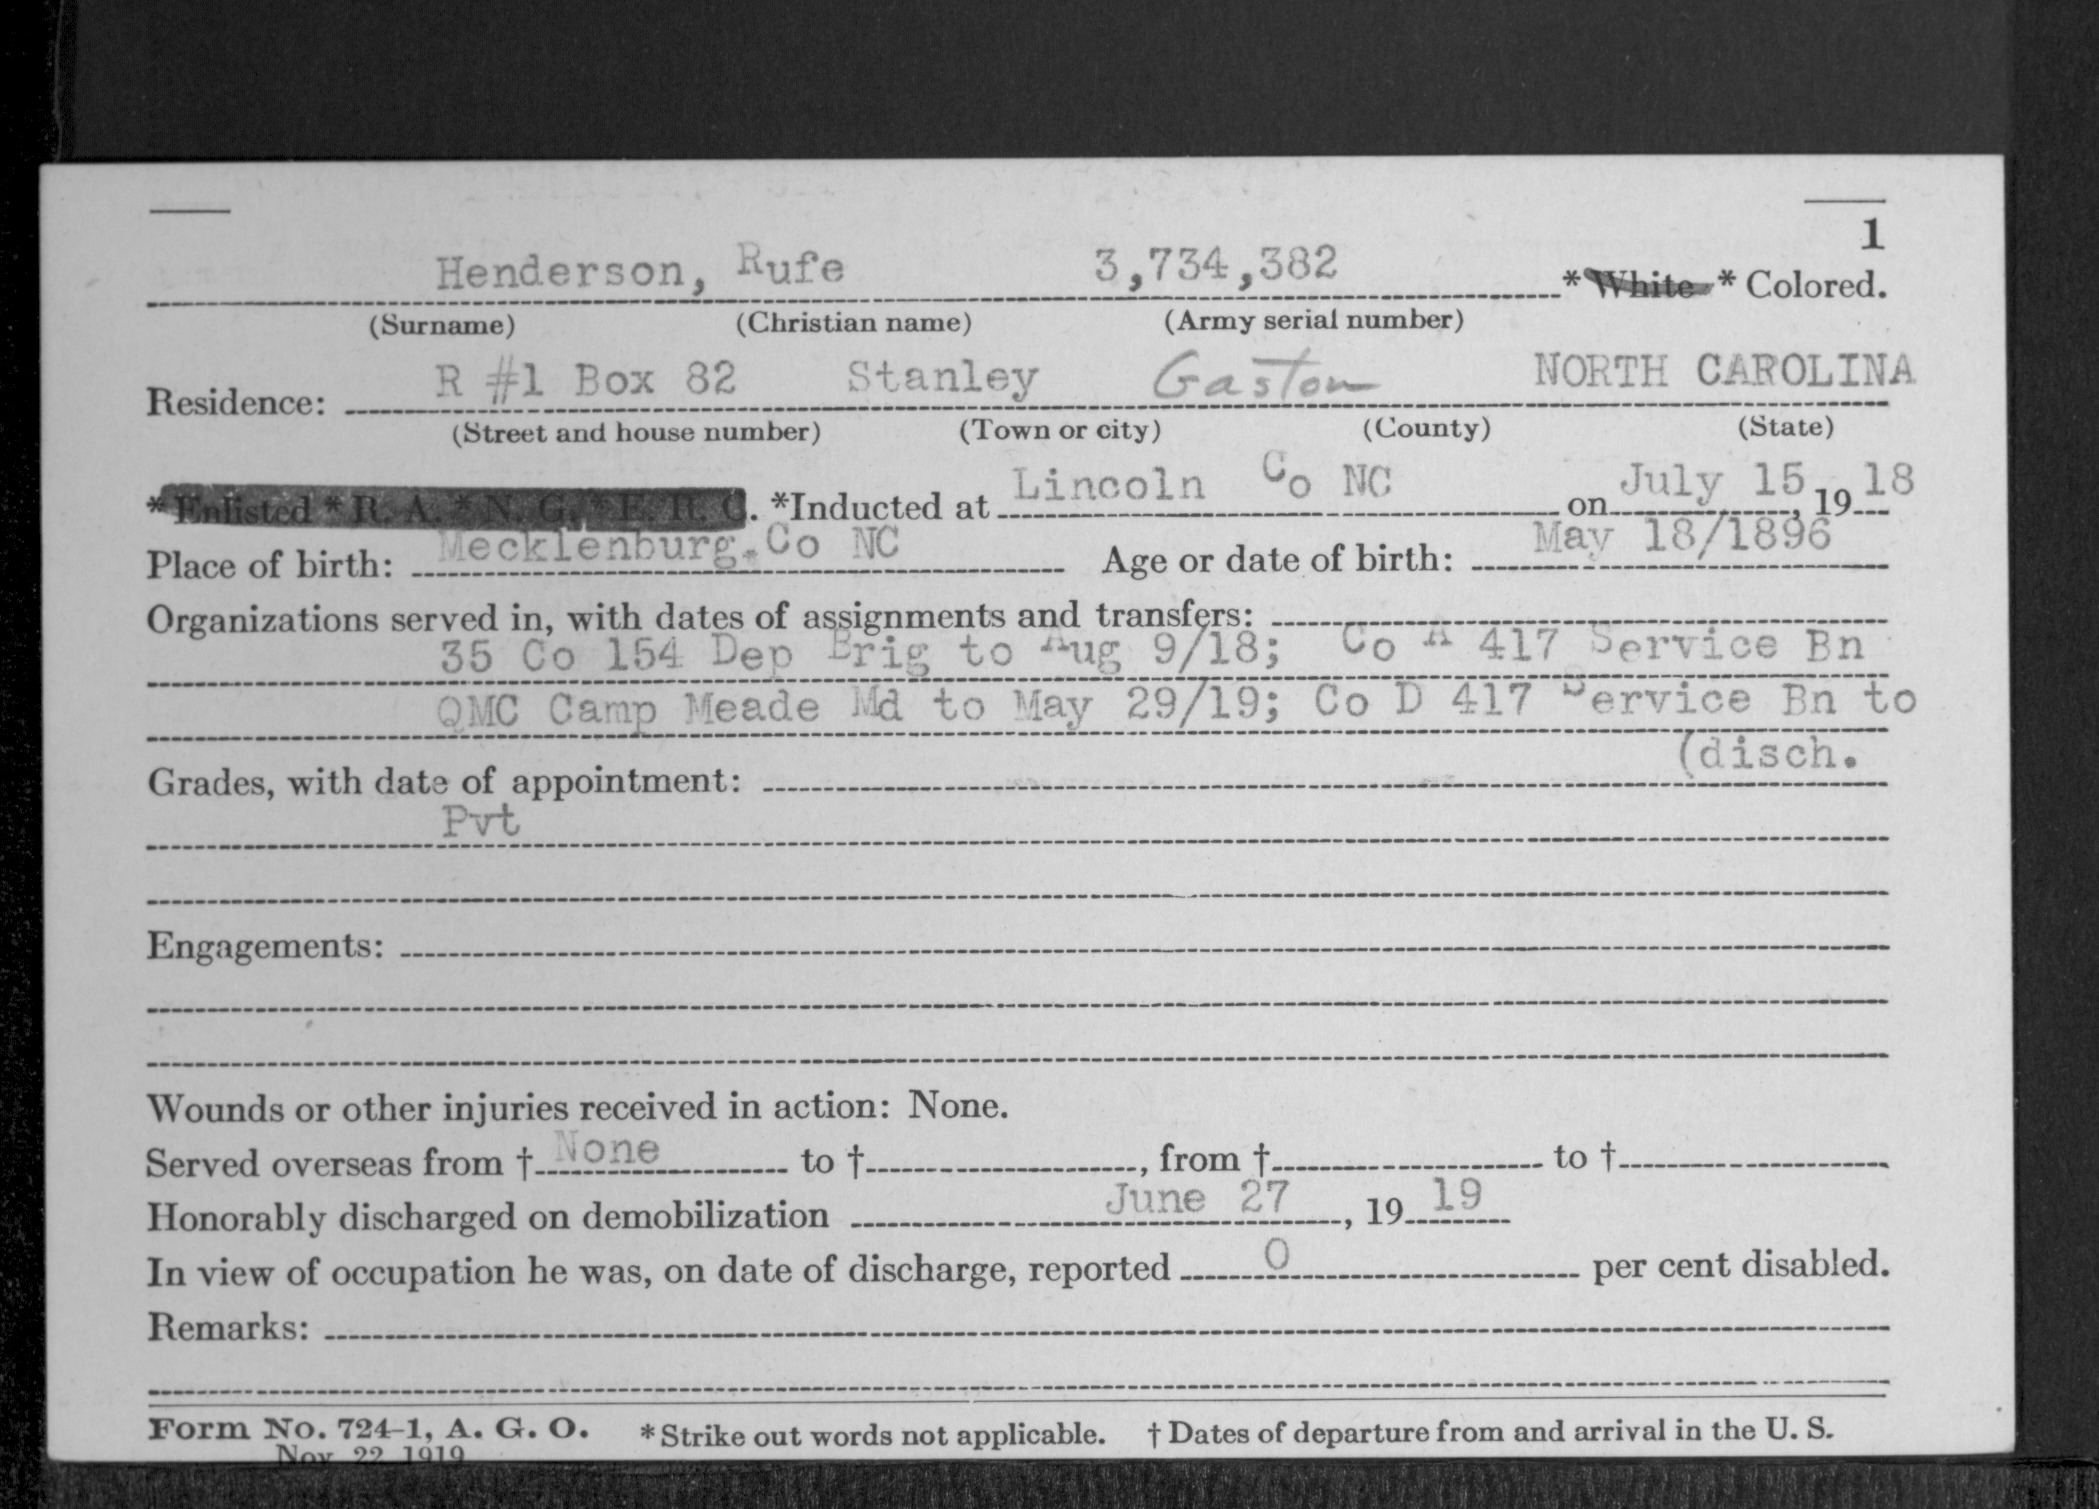 1
Henderson, Rufe 3,734,382 * White * Colored.
(Surname) (Christian name) (Army serial number)
Residence: R #1 Box 82 Stanley Gaston NORTH CAROLINA
(Street and house number) (Town or city) (County) (State)
* Enlisted * R. A. * N. G. * E. R. C. *Inducted at Lincoln Co NC on July 15, 19 18
Place of birth: Mecklenburg.Co NC Age or date of birth: May 18/1896
Organizations served in, with dates of assignments and transfers:
35 Co 154 Dep Brig to Aug 9/18; Co A 417 Service Bn
QMC Camp Meade Md to May 29/19; Co D 417 Service Bn to
(disch.
Grades, with date of appointment:
Pvt
Engagements:
Wounds or other injuries received in action: None.
Served overseas from † None to †, from † to †
Honorably discharged on demobilization June 27, 19 19
In view of occupation he was, on date of discharge, reported 0 per cent disabled.
Remarks:
Form No. 724-1, A. G. O. * Strike out words not applicable. † Dates of departure from and arrival in the U. S.
Nov. 22, 1919